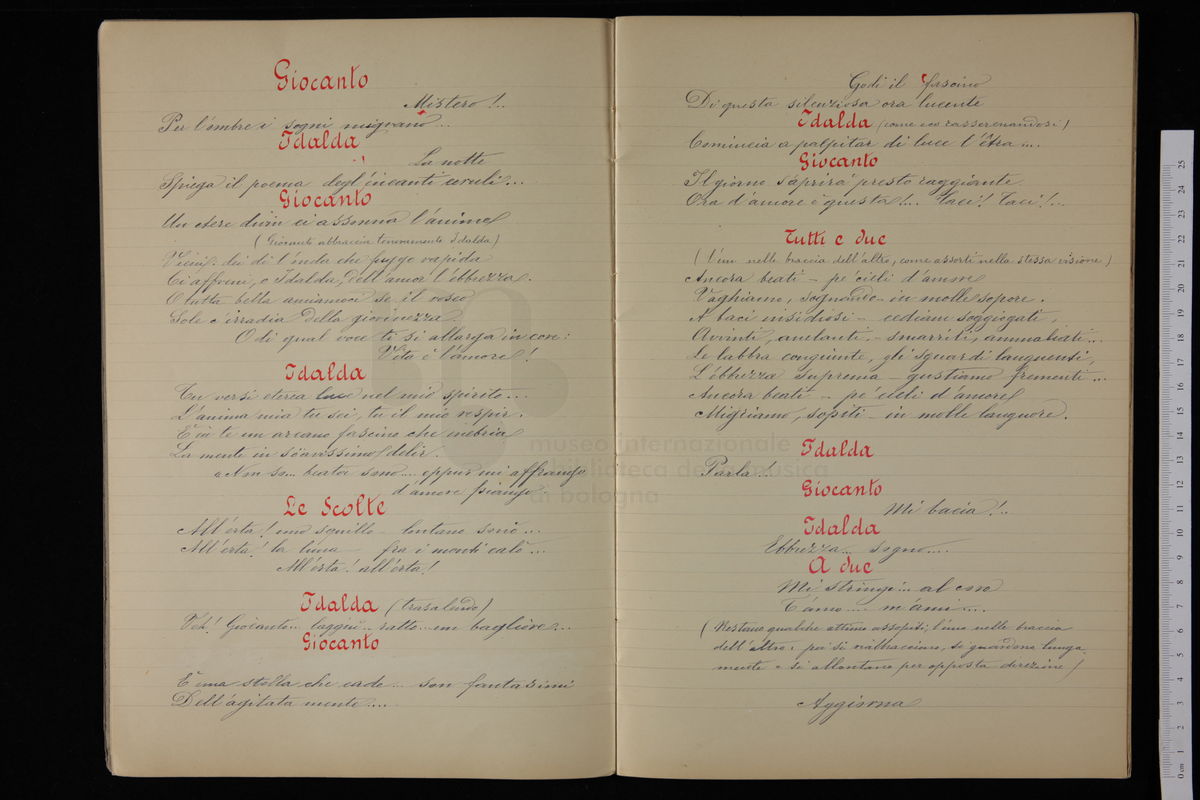 Giocanto
Mistero!..
Per l'ombre i sogni migrano...
Idalda
La notte
Spiega il poema degl'incanti ceruli...
Giocanto
Un etere divin ci assonna l'anime
(Giocanto abbraccia teneramente Idalda)
Vieni: dei dì l'onda che fugge rapida
Ci affreni, o Idalda, dell'amor l'ebbrezza.
O tutta bella amiamoci se il roseo
Sole c'irradia della giovinezza
Odi qual voce ti si allarga in core:
Vita è l'amore!
Idalda
Tu versi eterea luce nel mio spirito...
L'anima mia tu sei, tu il mio respir.
È in te un arcano fascino che inebria
La mente in soavissimo delir.
Non so... beata sono... eppur mi affrango
d'amore piango.
Le Scolte
All'erta! uno squillo - lontano sonò...
All'erta! la luna fra i monti calò...
All'erta! all'erta!
Idalda (trasalendo)
Veh! Giocanto... laggiù... ratto... un bagliore...
Giocanto
È una stella che cade... son fantasimi
Dell'agitata mente....
Godi il fascino
Di questa silenziosa ora lucente
Idalda (come rasserenandosi)
Comincia a palpitar di luce l'Etra....
Giocanto
Il giorno s'aprirà presto raggiante
Ora d'amore è questa!... Taci! Taci!...
Tutti e due
(l'un nelle braccia dell'altro, come assorti nella stessa visione)
Ancora beati - pe' cieli d'amore
Vaghiamo, sognando - in molle sopore.
A baci insidiosi - cediam soggiogati,
Avvinti, anelanti, - smarriti, ammaliati...
Le labbra congiunte, gli sguardi languenti,
L'ebbrezza suprema - gustiamo frementi...
Ancora beati - pe' cieli d'amore
Migriamo, sopiti - in molle languore.
Idalda
Parla...
Giocanto
Mi bacia!..
Idalda
Ebbrezza... sogno....
A due
Mi stringi... al core
T'amo.... m'ami....
(Restano qualche attimo assopiti, l'uno nelle braccia
dell'altro: poi si riabbracciano, si guardano lunga-
mente e si allontano per opposta direzione)
Aggiorna
museo internazionale
e biblioteca della musica
di bologna
0 cm 1 2 3 4 5 6 7 8 9 10 11 12 13 14 15 16 17 18 19 20 21 22 23 24 25